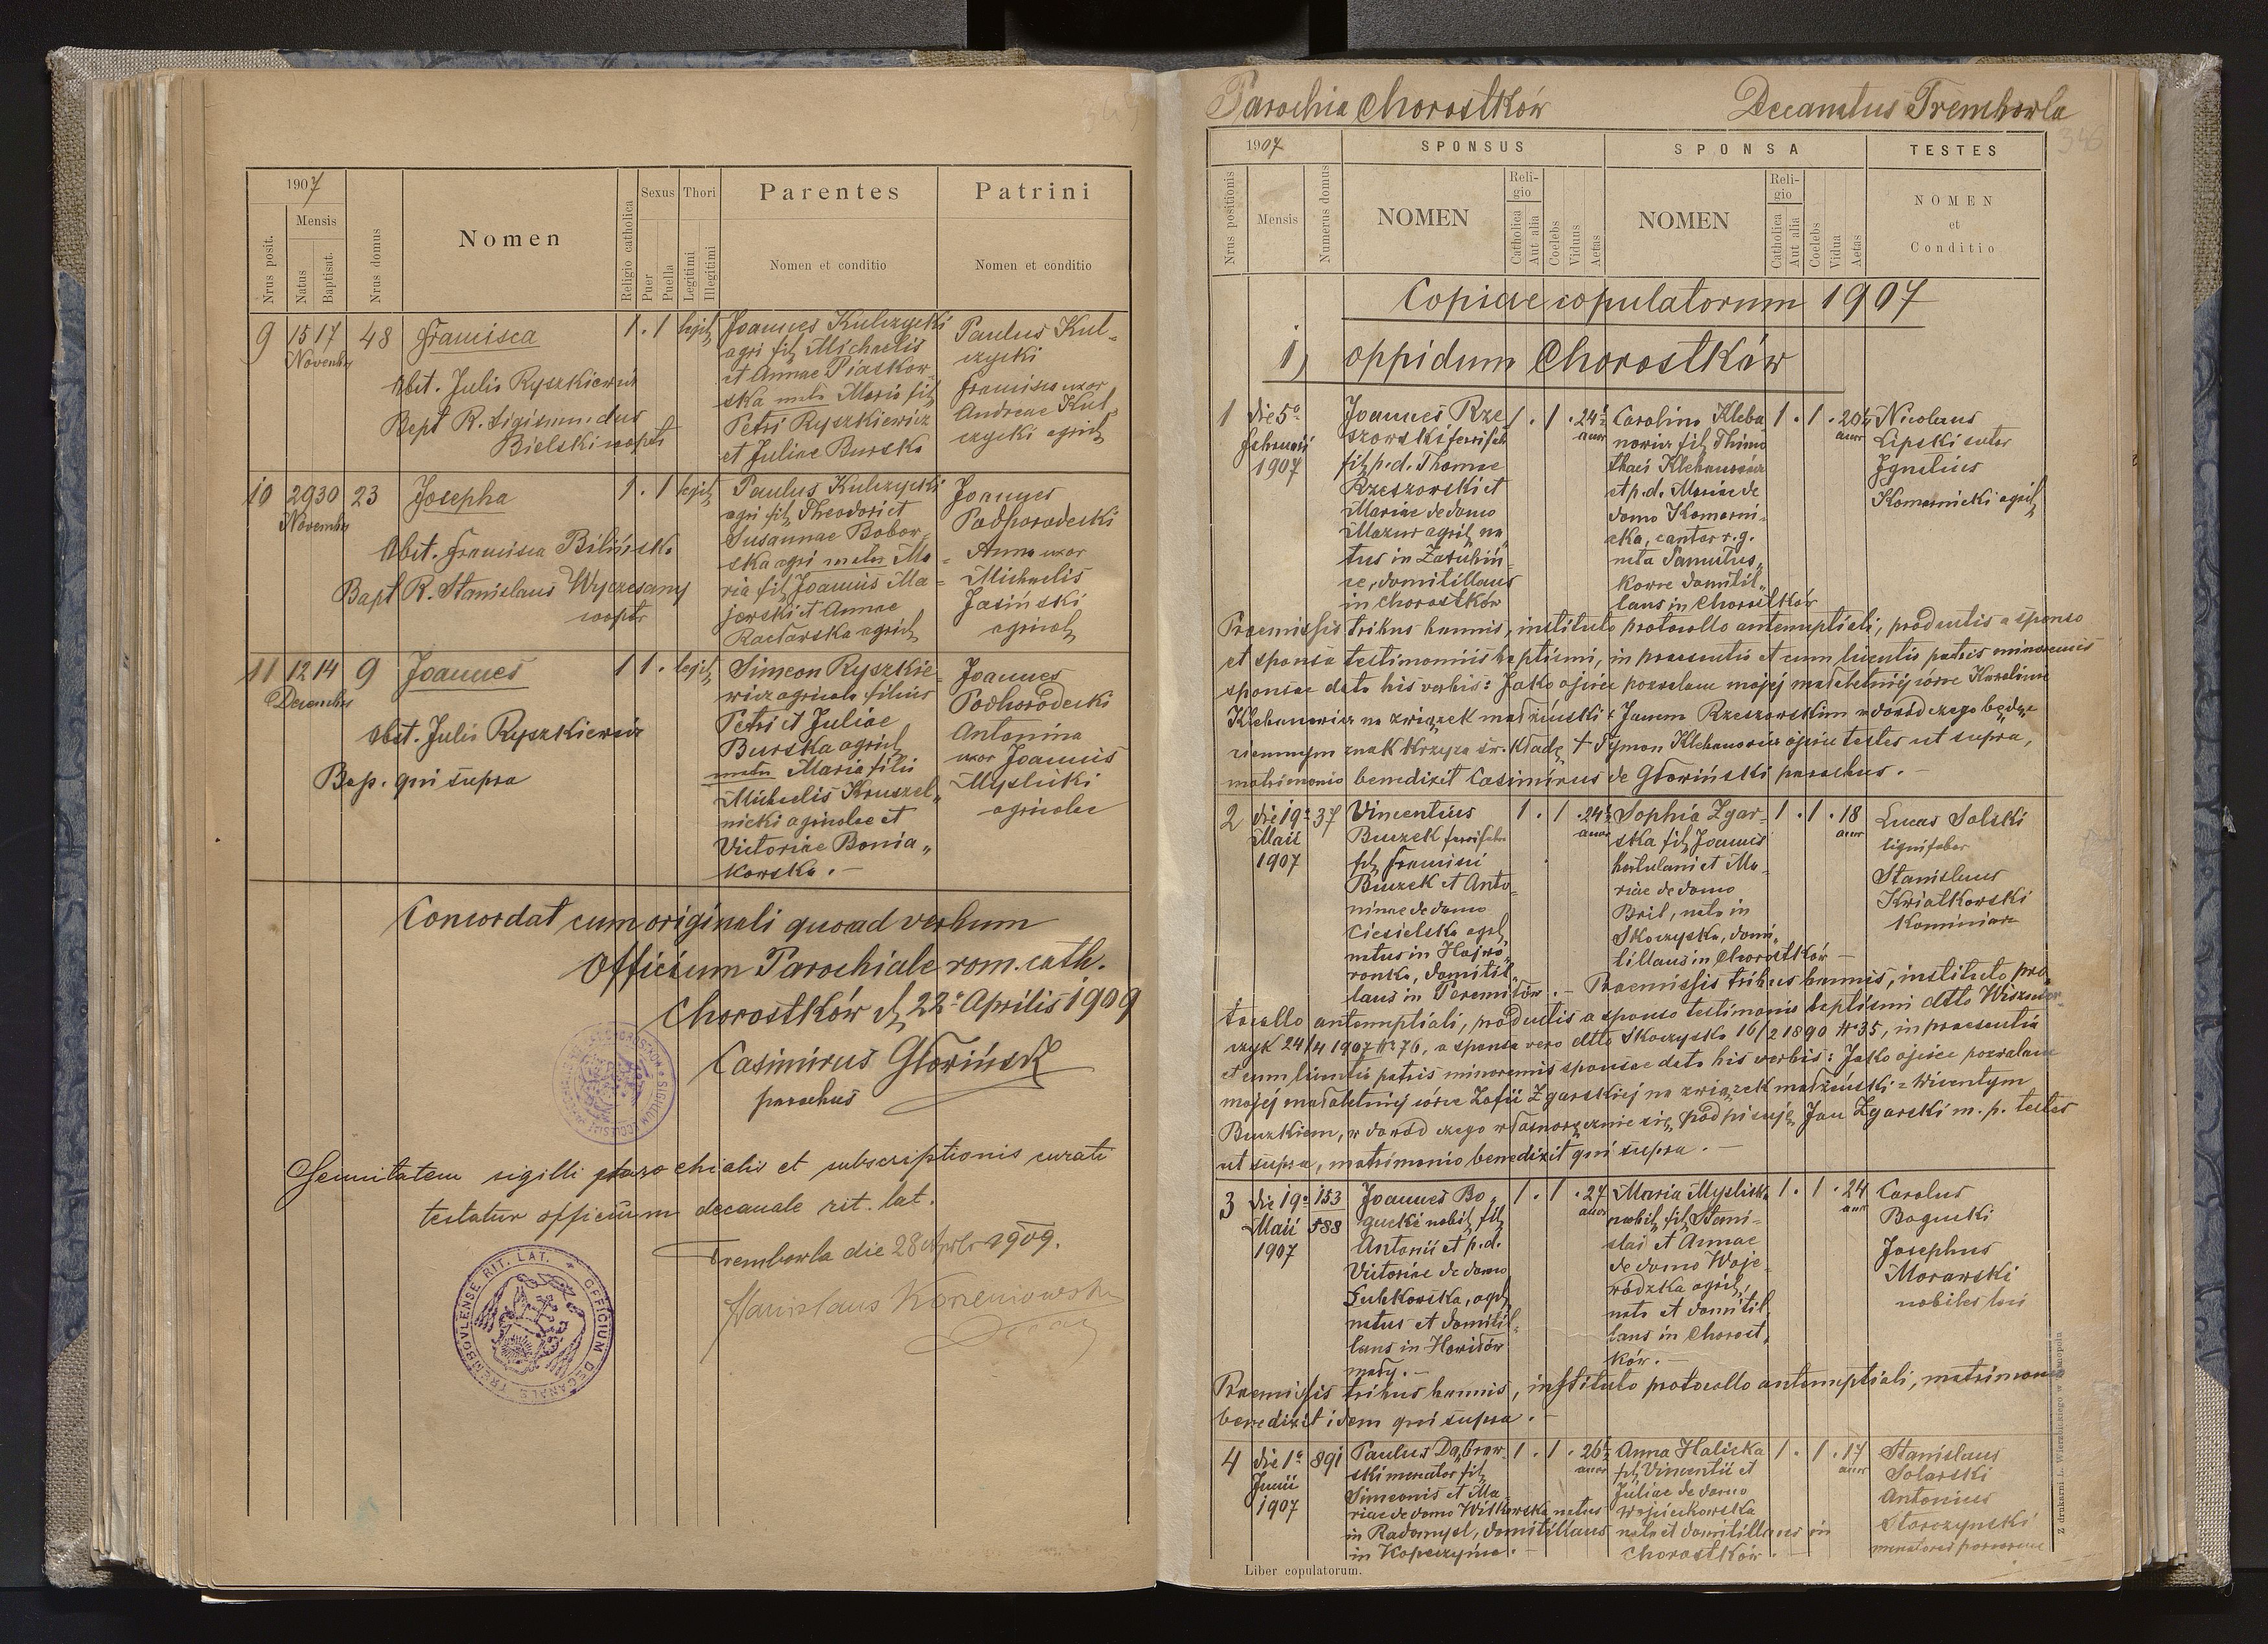 1907
Mensis
Nrus posit.
Natus
Baptisat.
Nrus domus
Nomen
Religio catholica
Sexus
Puer
Puella
Thori
Legitimi
Illegitimi
Parentes
Nomen et conditio
Patrini
Nomen et conditio
9 15 17 48 Francisca 1 . 1 legit
Novembr
Obst. Julia Ryszkiewicz
Bapt R. Sigismundus
Bielski coopt
Joannes Kulczycki
agri fil Michaelis
et Annae Piaskow-
ska mater Maria fil
Petri Ryszkiewicz
et Juliae Burska
Paulus Kul-
czycki
Francisca uxor
Andreae Kul-
czycki agricol
10 29 30 23 Josepha 1 . 1 legit
Novembr
Obst. Francisca Bilińska
Bapt R. Stanislaus Wyczesany
coopt
Paulus Kulczycki
agri fil Theodori et
Susannae Bobor-
ska agri mater Ma-
ria fil Joannis Ma-
jewski et Annae
Racławska agricol
Joannes
Podhorodecki
Anna uxor
Michaelis
Jasiński
agricol
11 12 14 9 Joannes 1 1 . legit
Decembr
Obst. Julia Ryszkiewicz
Bap. qui supra
Simeon Ryszkie-
wicz agricola filius
Petri et Juliae
Burska agricol
mater Maria filia
Michaelis Kruszel-
nicki agricolae et
Victoriae Bonia-
kowska . —
Joannes
Podhorodecki
Antonina
uxor Joannis
Myslicki
agricolae
Concordat cum originali quoad verbum
Officium Parochiale rom. cath.
Chorostków d 22º Aprilis 1909
Casimirus Głowiński
parochus
Genuitatem sigilli parochialis et subscriptionis curati
testatur officium decanale rit. lat.
Trembowla die 28 Aprlis 1909.
Stanislaus Korzeniowski
OFFICIUM DECANALE TREMBOVLENSE RIT. LAT.
Parochia Chorostków Decanatus Trembowla
346
1907
SPONSUS
SPONSA
TESTES
Nrus positionis
Mensis
Numerus domus
NOMEN
Religio
Catholica
Aut alia
Coelebs
Viduus
Aetas
NOMEN
Religio
Catholica
Aut alia
Coelebs
Vidua
Aetas
NOMEN
et
Conditio
Copiae copulatorum 1907
1) oppidum Chorostków
1 die 5º
Februarii
1907
Joannes Rze-
szowski ferrifab
fil p. d. Thomae
Rzeszowski et
Mariae de domo
Mazur agricol na-
tus in Zascin
ce, domitillans
in Chorostków
1 . 1 . 24½
anor
Carolina Kleba
nowicz fil Thimo
thaei Klebanowicz
et p. d. Mariae de
domo Komarni-
cka, cantor r. g.
nata Samolus-
kowce domitil-
lans in Chorostków
1 . 1 . 20½
anor
Nicolaus
Lipski sutor
Ignatius
Komarnicki agricol
Praemissis tribus bannis, instituto protocollo antenuptiali, productis a sponso
et sponsa testimoniis baptismi, in praesentia et cum licentia patris minorennis
sponsae data his verbis: Jako ojciec pozwalam mojej małoletniej córce Karolinie
Klebanowicz na związek małżeński z Janem Rzeszowskim w dowód czego będąc
niemym znak Krzyża św. kładę + Tymon Klebanowicz ojciec testes ut supra,
matrimonio benedixit Casimirus de Głowiński parochus . —
2 die 19º 37
Maii
1907
Vincentius
Buczek ferrifab
fil Francisci
Buczek et Anto-
ninae de domo
Ciesielska agril
natus in Hajwo-
ronka, domitil-
lans in Peremiłów . —
1 . 1 . 24½
anor
Sophia Zgar-
ska fil Joannis
hortulani et Ma-
riae de domo
Bril, nata in
Skoczyska, domi-
tillans in Chorostków —
1 . 1 . 18
anor
Lucas Solski
lignifaber
Stanislaus
Kwiatkowski
kominiarz
Praemissis tribus bannis, instituto pro-
tocollo antenuptiali, productis a sponso testimonio baptismi dtto Wisznio
czyk 24/4 1907 Nº 76, a sponsa vero dtto Skoczyska 16/2 1890 Nº 35, in praesentia
et cum licentia patris minorennis sponsae data his verbis: Jako ojciec pozwalam
mojej małoletniej córce Zofii Zgarskiej na związek małżeński z Wincentym
Buczkiem, w dowód czego własnoręcznie się podpisuję Jan Zgarski m. p. testes
ut supra, matrimonio benedixit qui supra . —
3 die 19º 153
Maii 588
1907
Joannes Bo-
gucki nobil fil
Antonii et p. d.
Victoriae de domo
Gutkowska, agril
natus et domitil-
lans in Howiłów
mały . —
1 . 1 . 27
anor
Maria Myslicka
nobil fil Stani-
slai et Annae
de domo Woje-
wódzka agricol
nata et domitil
lans in Chorost-
ków . —
1 . 1 . 24
anor
Carolus
Bogucki
Josephus
Morawski
nobiles loci
Praemissis tribus bannis, instituto protocollo antenuptiali, matrimoni
benedixit idem qui supra . —
4 die 1º 891
Junii
1907
Paulus Dąbrow-
ski mercator fil
Simeonis et Ma-
riae de domo Witkowska natus
in Radomysl, domitillans
in Kopeczynce . —
1 . 1 . 26½
anor
Anna Halicka
fil Vincentii et
Juliae de domo
Wojciechowska
nata et domitillans in
Chorostków . —
1 . 1 . 17
anor
Stanislaus
Solarski
Antonius
Storozynski
mercatores porcorum
Liber copulatorum.
Z drukarni L. Wierzbickiego w Tarnopolu